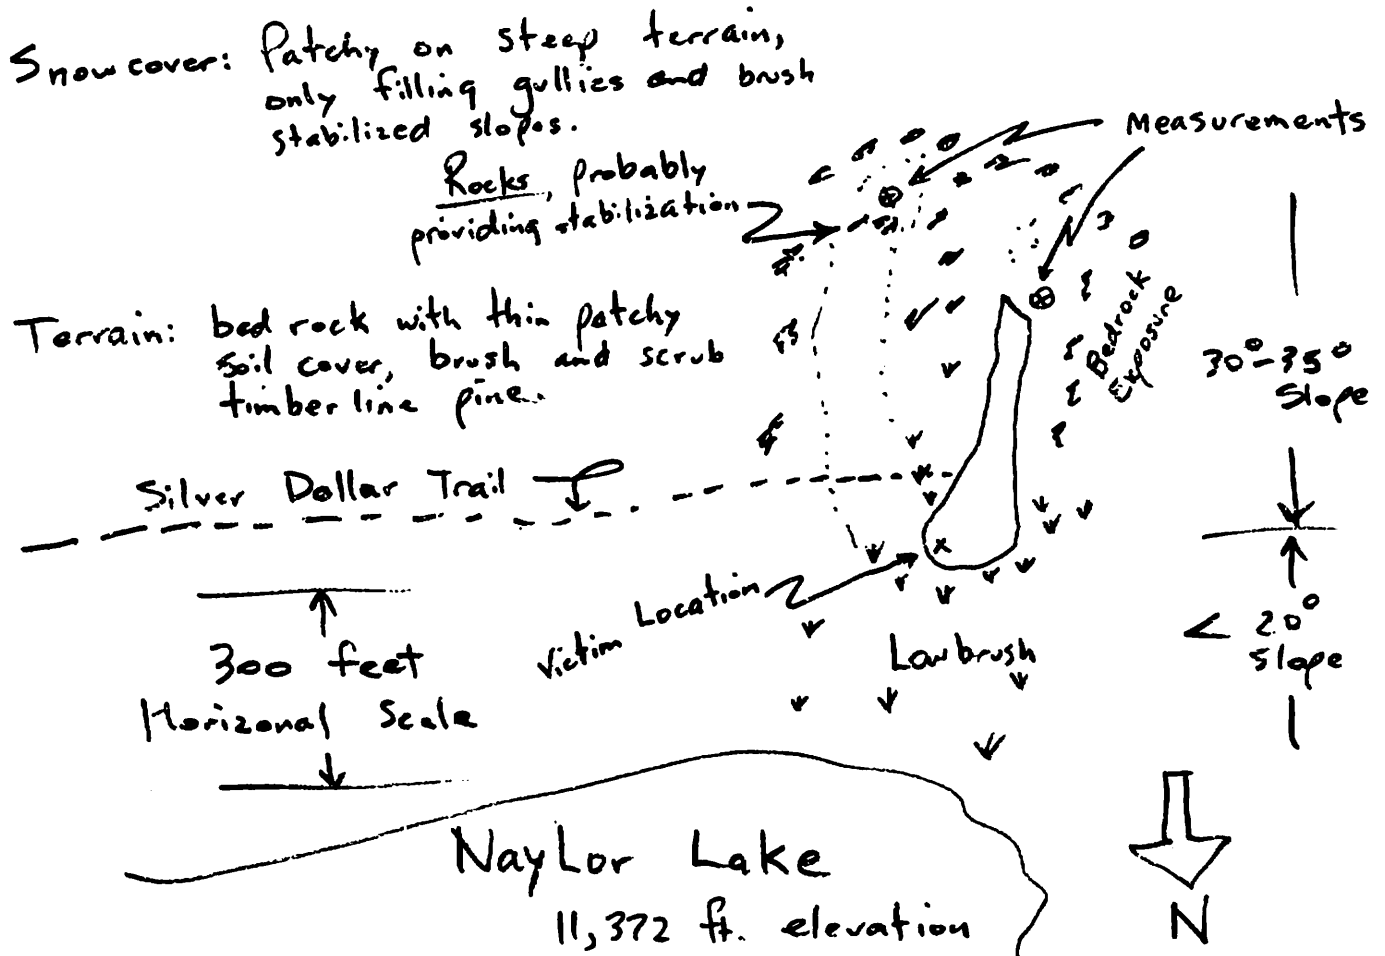 Snow cover: Patchy on steep terrain,
only filling gullies and brush
stabilized slopes.
Measurements
Rocks, probably
providing stabilization
Terrain: bedrock with thin patchy
soil cover, brush and scrub
timberline pine.
Bedrock
Exposure
30°-35°
Slope
Silver Dollar Trail
x
Victim Location
< 20°
Slope
300 feet
Horizonal Scale
Low brush
NayLor Lake
11,372 ft. elevation
N